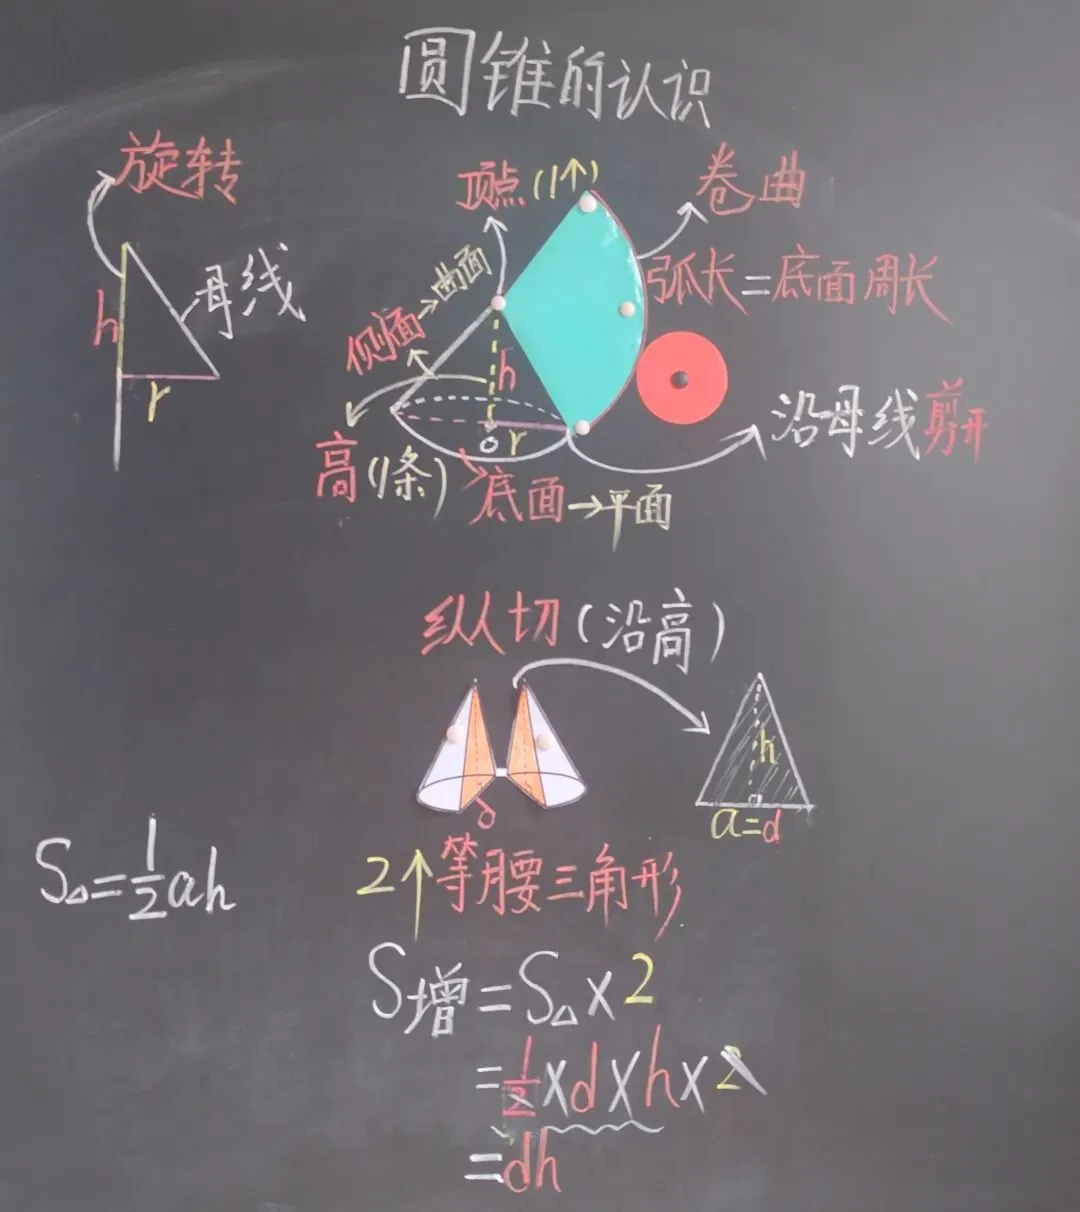 圆锥的认识
旋转
h
r
母线
顶点(1个)
卷曲
侧面→曲面
弧长=底面周长
h
r
O
高(1条)
底面→平面
沿母线剪开
纵切(沿高)
d
h
a=d
S△=1/2ah
2个等腰三角形
S增=S△×2
=1/2×d×h×2
=dh